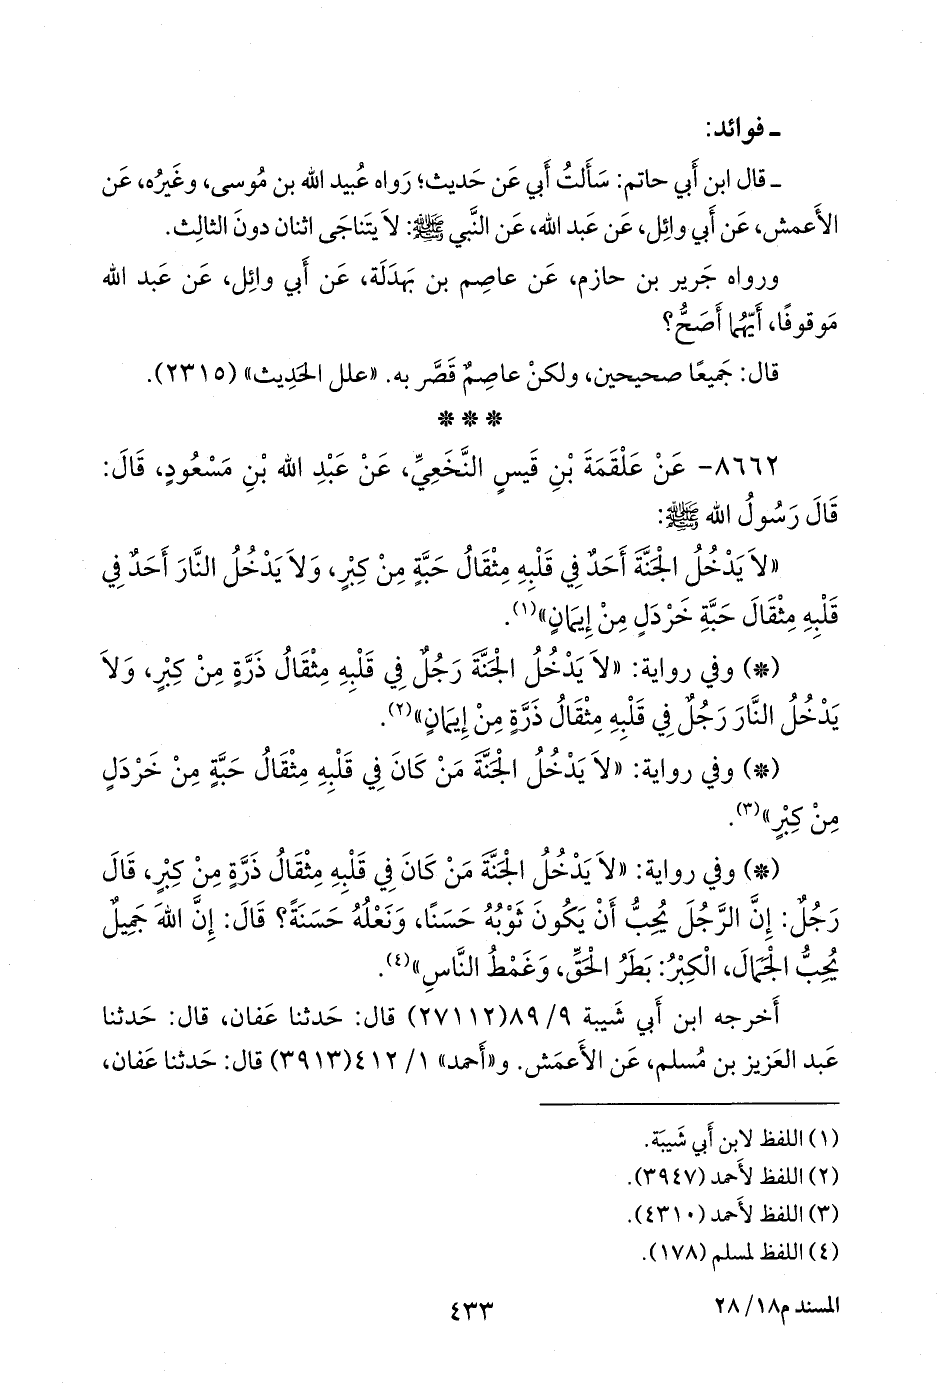 ـ فوائد:
ـ قال ابن أَبي حاتم: سَأَلتُ أَبي عَن حَديث؛ رَواه عُبيد الله بن مُوسى، وغَيرُه، عَن
الأَعمش، عَن أَبي وائِل، عَن عَبد الله، عَن النَّبي ﷺ: لاَ يَتناجَى اثنان دونَ الثالِث.
ورواه جَرير بن حازم، عَن عاصِم بن بَهدَلَة، عَن أَبي وائِل، عَن عَبد الله
مَوقوفًا، أَيّهُما أَصَحُّ؟
قال: جَميعًا صحيحين، ولكنْ عاصِمٌ قَصَّر به. «علل الحَدِيث» (٢٣١٥).
* * *
٨٦٦٢- عَنْ عَلْقَمَةَ بْنِ قَيسٍ النَّخَعِيِّ، عَنْ عَبْدِ الله بْنِ مَسْعُودٍ، قَالَ:
قَالَ رَسُولُ الله ﷺ:
«لاَ يَدْخُلُ الجَنَّةَ أَحَدٌ فِي قَلْبِهِ مِثْقَالُ حَبَّةٍ مِنْ كِبْرٍ، وَلاَ يَدْخُلُ النَّارَ أَحَدٌ فِي
قَلْبِهِ مِثْقَالَ حَبَّةِ خَرْدَلٍ مِنْ إِيمَانٍ»(١).
(*) وفي رواية: «لاَ يَدْخُلُ الجَنَّةَ رَجُلٌ فِي قَلْبِهِ مِثْقَالُ ذَرَّةٍ مِنْ كِبْرٍ، وَلاَ
يَدْخُلُ النَّارَ رَجُلٌ فِي قَلْبِهِ مِثْقَالُ ذَرَّةٍ مِنْ إِيمَانٍ»(٢).
(*) وفي رواية: «لاَ يَدْخُلُ الجَنَّةَ مَنْ كَانَ فِي قَلْبِهِ مِثْقَالُ حَبَّةٍ مِنْ خَرْدَلٍ
مِنْ كِبْرٍ»(٣).
(*) وفي رواية: «لاَ يَدْخُلُ الجَنَّةَ مَنْ كَانَ فِي قَلْبِهِ مِثْقَالُ ذَرَّةٍ مِنْ كِبْرٍ، قَالَ
رَجُلٌ: إِنَّ الرَّجُلَ يُحِبُّ أَنْ يَكُونَ ثَوْبُهُ حَسَنًا، وَنَعْلُهُ حَسَنَةً؟ قَالَ: إِنَّ اللهَ جَمِيلٌ
يُحِبُّ الجَمَالَ، الْكِبْرُ: بَطَرُ الحَقِّ، وَغَمْطُ النَّاسِ»(٤).
أَخرجه ابن أَبي شَيبة ٩/ ٨٩(٢٧١١٢) قال: حَدثنا عَفان، قال: حَدثنا
عَبد العَزيز بن مُسلم، عَن الأَعمَش. و«أَحمد» ١/ ٤١٢(٣٩١٣) قال: حَدثنا عَفان،
(١) اللفظ لابن أَبي شَيبَة.
(٢) اللفظ لأَحمد (٣٩٤٧).
(٣) اللفظ لأَحمد (٤٣١٠).
(٤) اللفظ لمسلم (١٧٨).
المسند م١٨/ ٢٨
٤٣٣